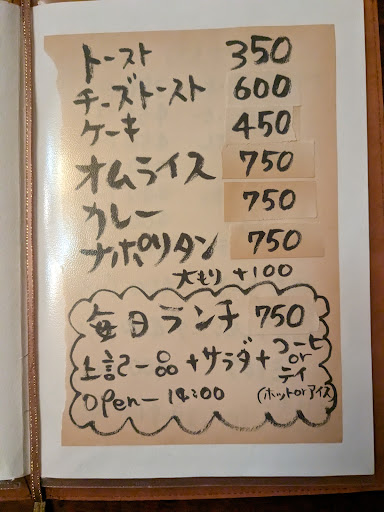 トースト 350
チーズトースト 600
ケーキ 450
オムライス 750
カレー 750
ナポリタン 750
大もり +100
毎日ランチ 750
上記一品+サラダ+コーヒ or ティ
(ホット or アイス)
Open〜14:00